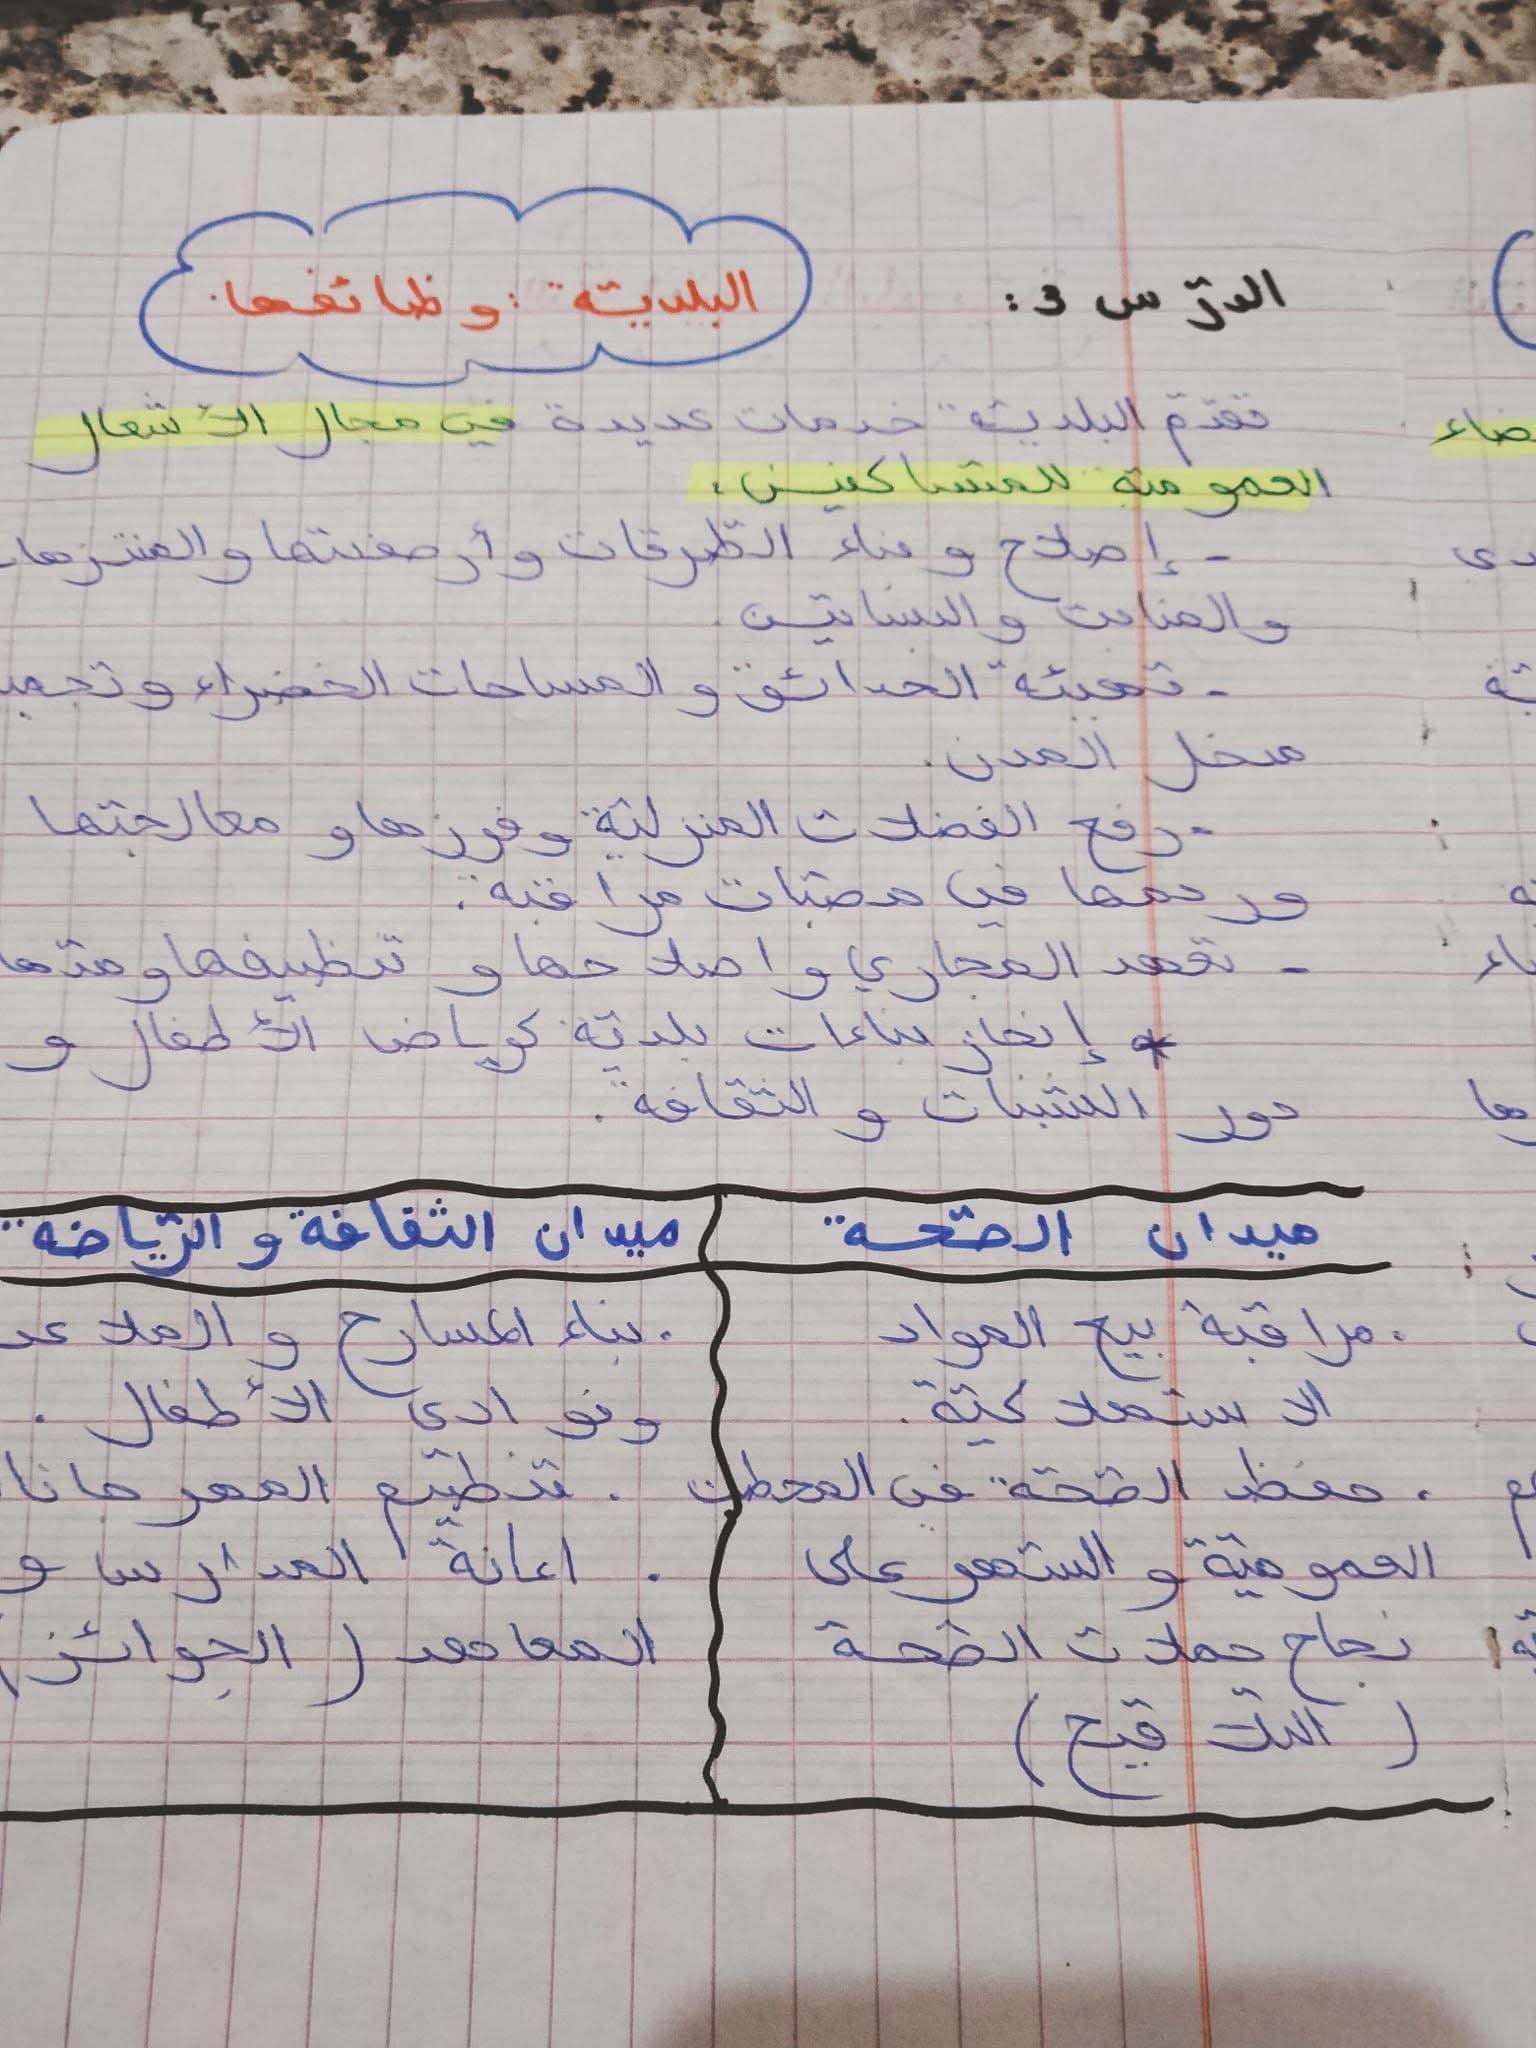 الدرس 3: البلدية: وظائفها.
تقدم البلدية خدمات عديدة في مجال الأشغال
العمومية للمتساكنين.
- إصلاح و بناء الطرقات وأرصفتها والمنتزها
والمنابت والبساتين.
- تهيئة الحدائق و المساحات الخضراء و تجميـ
مدخل المدن.
- رفع الفضلات المنزلية وفرزها و معالجتها
وردمها في مصبات مراقبة.
- تعهد المجاري و اصلاحها و تنظيفها ومدها
* إنجاز بناءات بلدية كرياض الأطفال و
دور الشبات و الثقافة.
ميدان الصحة
ميدان الثقافة و الرياضة
. مراقبة بيع المواد
الاستهلاكية.
. حفظ الصحة في المحطات
العمومية و السهر على
نجاح حملات الصحة
( التلاقيح )
. بناء المسارح و الملاعب
ونوادى الأطفال.
. تنظيم المهرجانات
. اعانة المدارس و
المعاهد ( الجوائز )
ضاء
دى
ية
ة
اء
رها